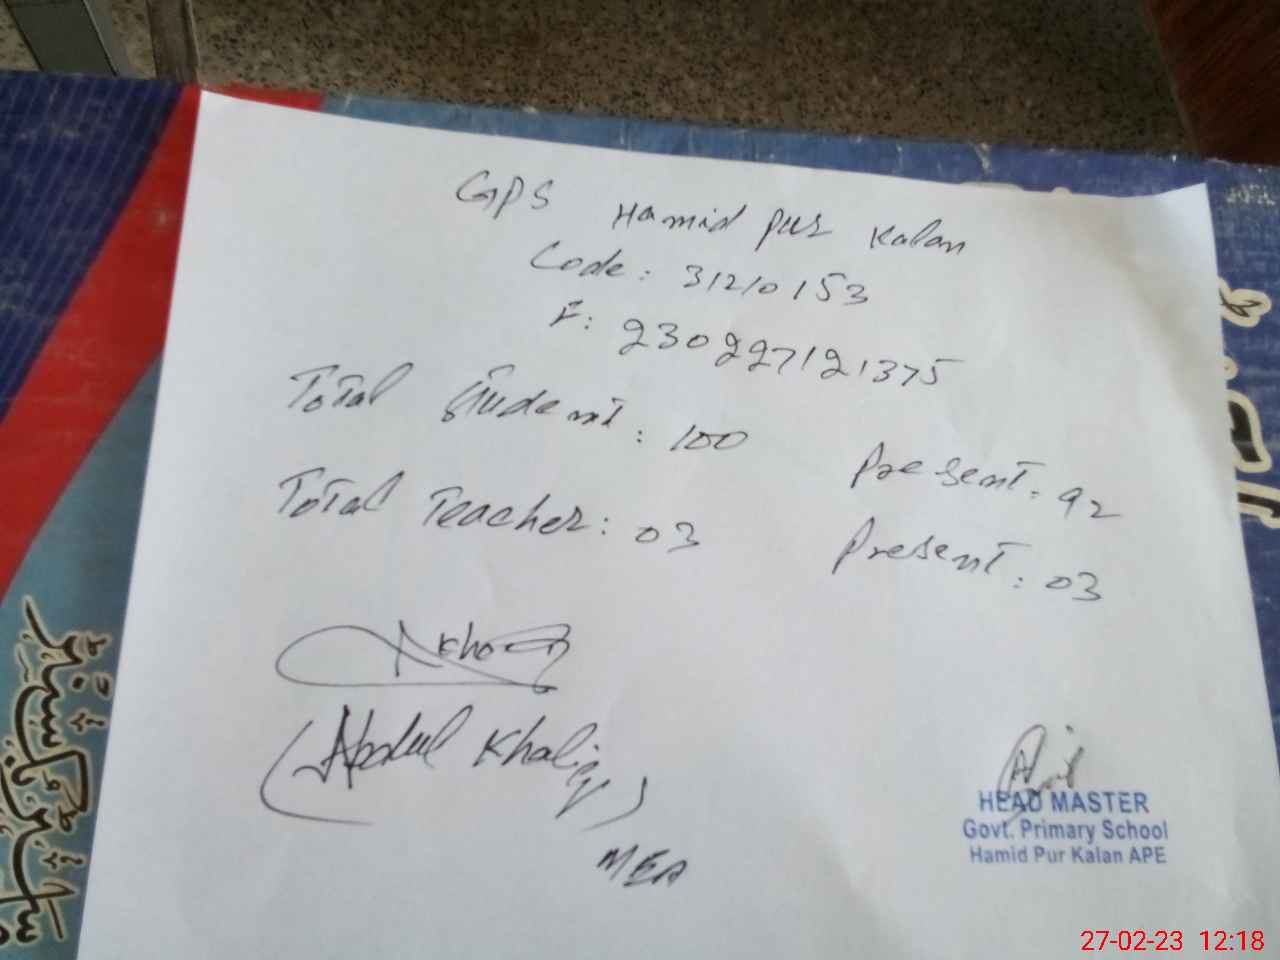 GPS Hamid pur Kalan
Code: 31210153
F: 230227121375
Total Student: 100 Present: 92
Total Teacher: 03 Present: 03
(Abdul Khaliq)
MEA
HEAD MASTER
Govt. Primary School
Hamid Pur Kalan APE
27-02-23 12:18